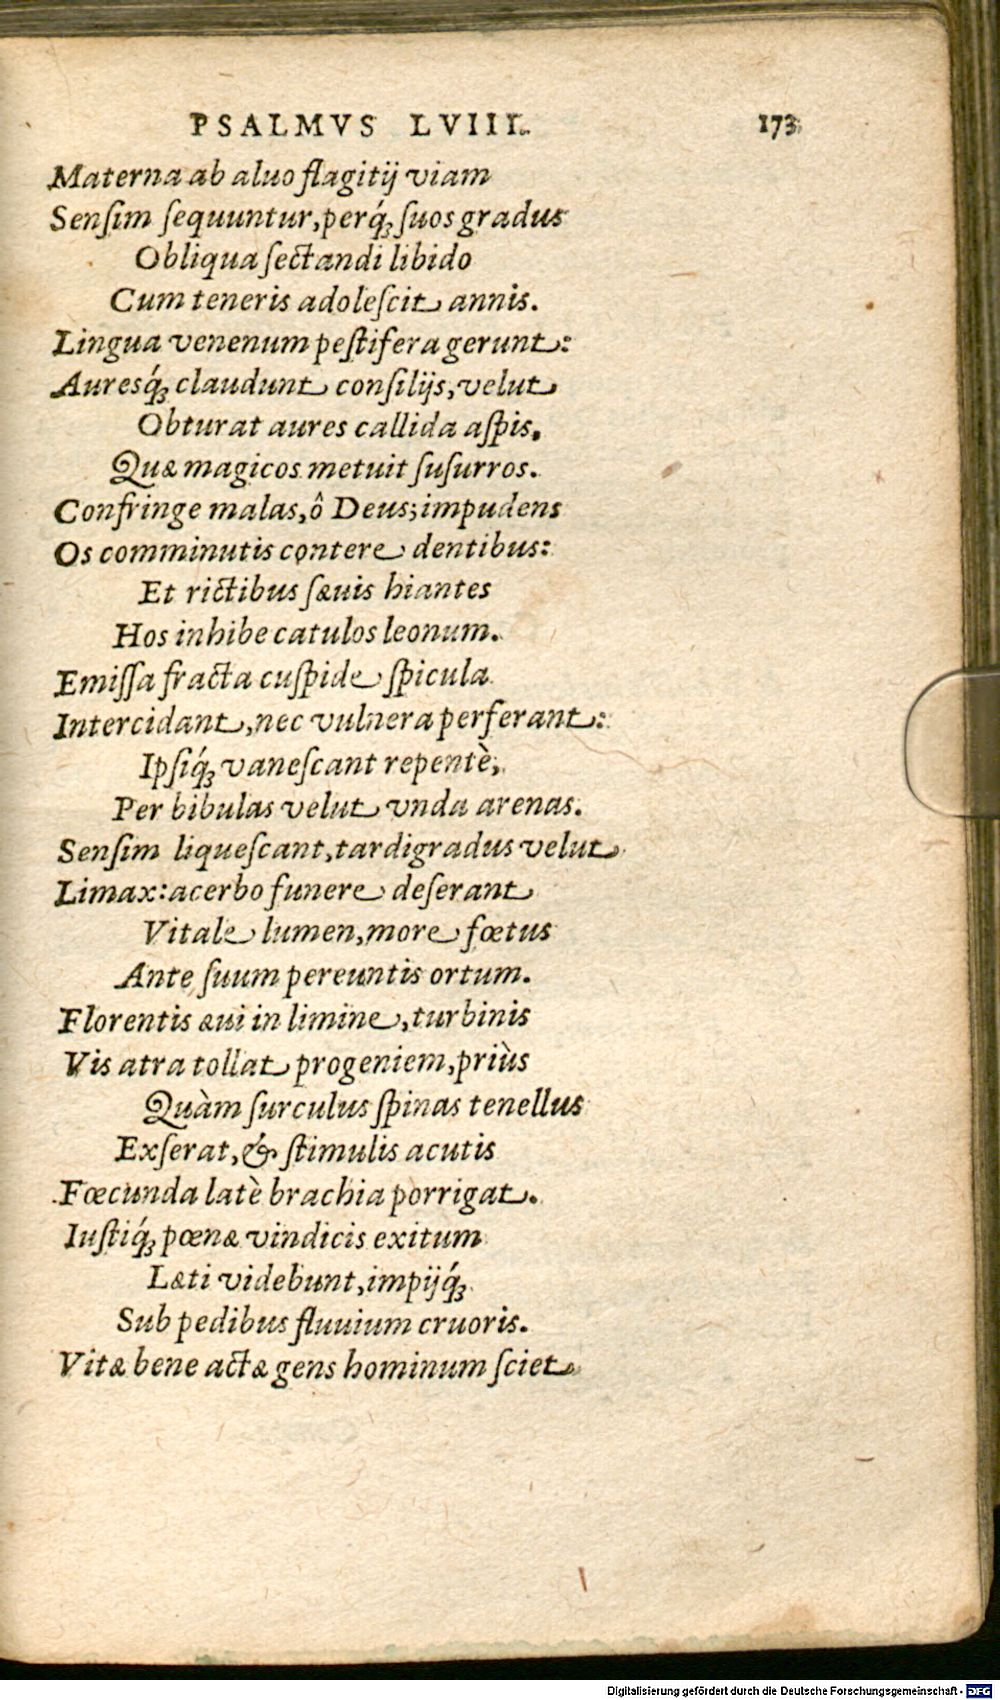 PSALMVS LVIII. 173
Materna ab aluo flagitij viam
Sensim sequuntur, perq́; suos gradus
Obliqua sectandi libido
Cum teneris adolescit annis.
Lingua venenum pestifera gerunt:
Auresq́; claudunt consilijs, velut
Obturat aures callida aspis,
Quæ magicos metuit susurros.
Confringe malas, ô Deus; impudens
Os comminutis contere dentibus:
Et rictibus sæuis hiantes
Hos inhibe catulos leonum.
Emissa fracta cuspide spicula
Intercidant, nec vulnera perferant:
Ipsiq́; vanescant repentè,
Per bibulas velut vnda arenas.
Sensim liquescant, tardigradus velut
Limax: acerbo funere deserant
Vitale lumen, more fœtus
Ante suum pereuntis ortum.
Florentis æui in limine, turbinis
Vis atra tollat progeniem, priùs
Quàm surculus spinas tenellus
Exserat, & stimulis acutis
Fœcunda latè brachia porrigat.
Iustiq́; pœnæ vindicis exitum
Læti videbunt, impijq́;
Sub pedibus fluuium cruoris.
Vitæ bene actæ gens hominum sciet
Digitalisierung gefördert durch die Deutsche Forschungsgemeinschaft - DFG